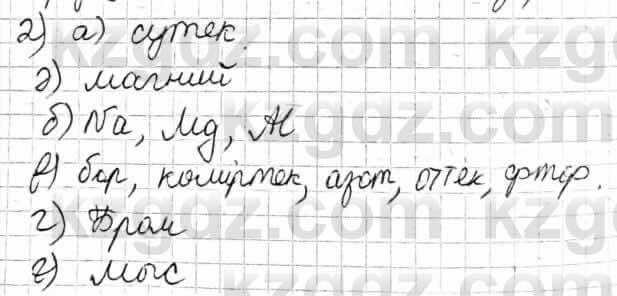 2) а) сутек.
ә) магний
б) Na, Mg, Al
в) бор, көміртек, азот, оттек, фтор.
г) Бром
ғ) мыс